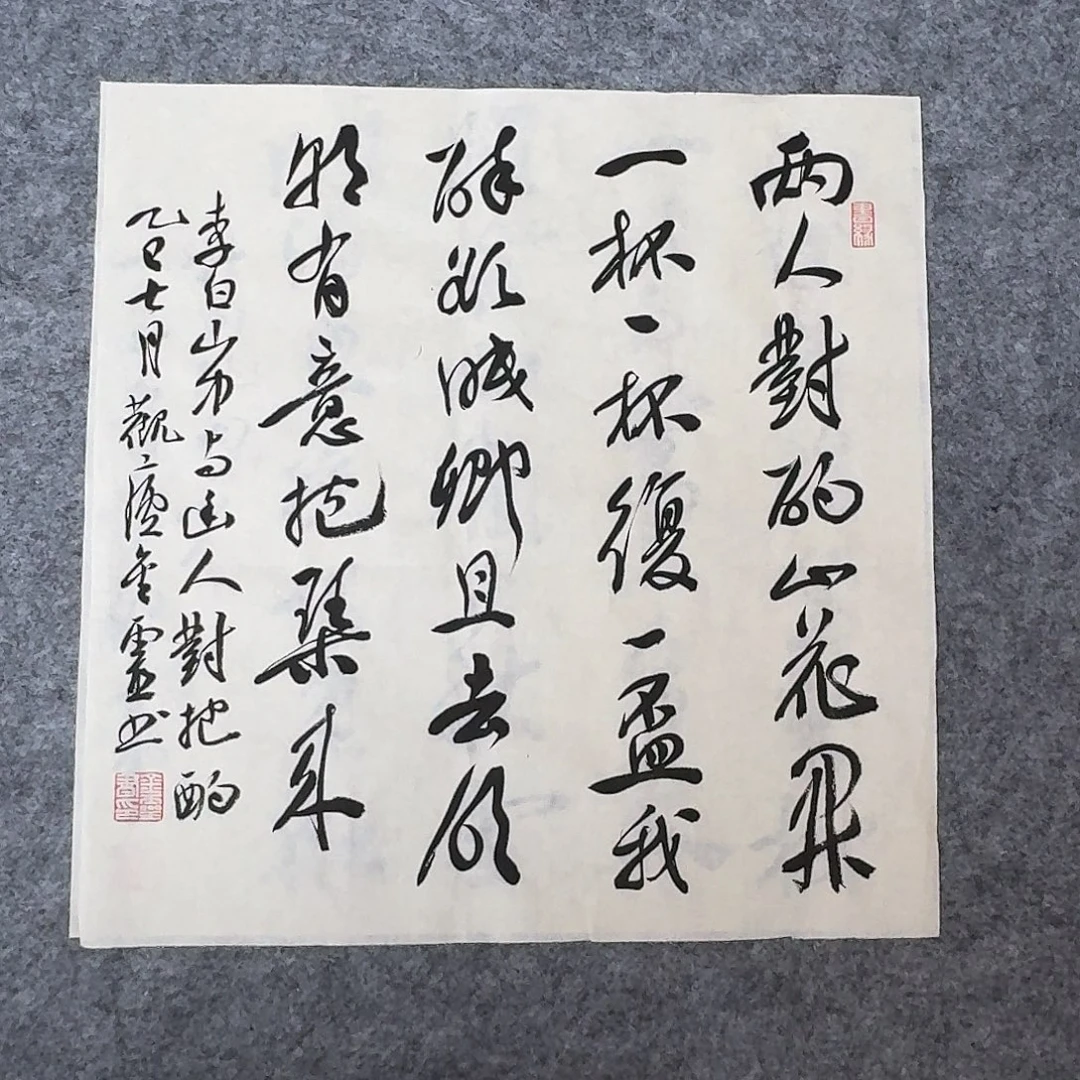 兩人對酌山花開
一杯一杯復一盃我
醉欲眠卿且去明
朝有意抱琴來
李白山中与幽人對把酌
乙巳七月觀金靈书